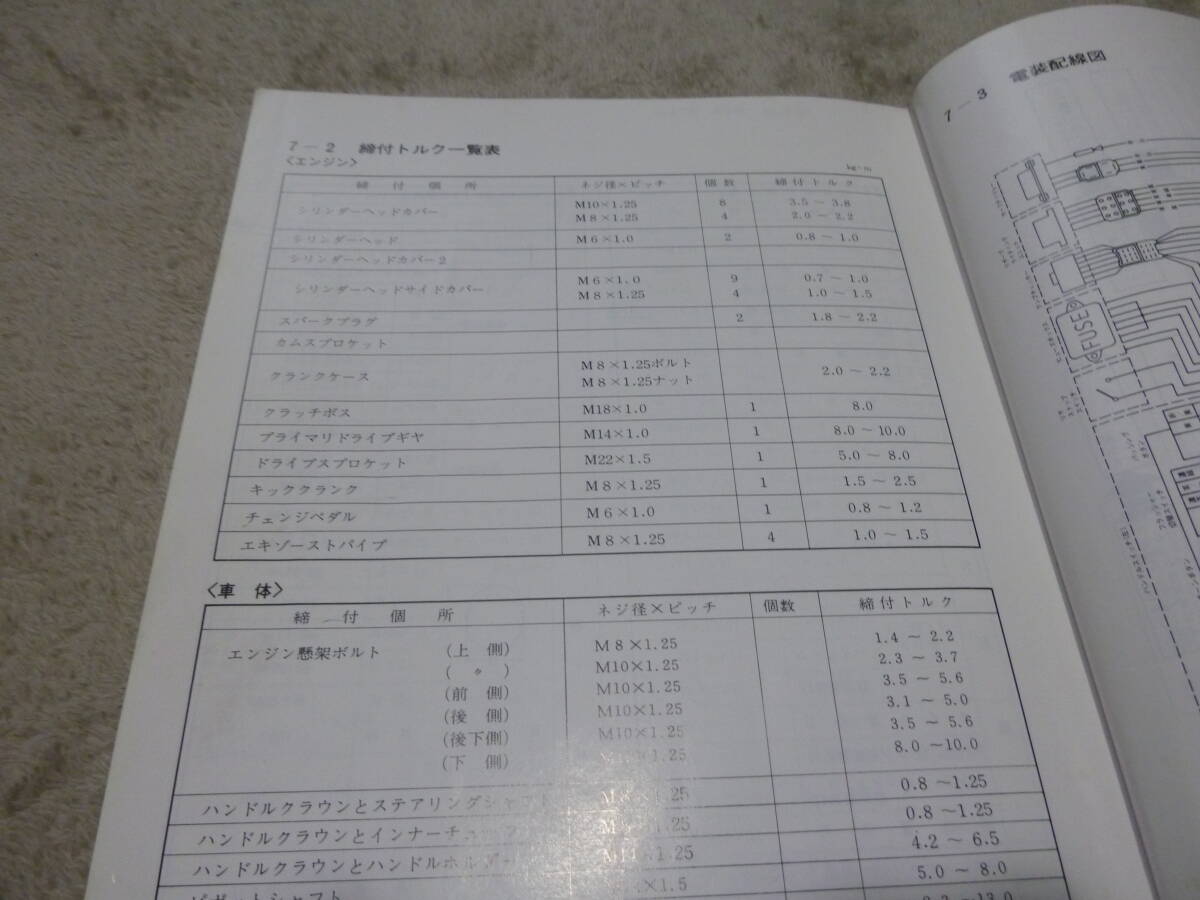 7－2 締付トルク一覧表
〈エンジン〉
kg-m
締付個所 ネジ径×ピッチ 個数 締付トルク
シリンダーヘッドカバー M10×1.25 8 3.5～3.8
M8×1.25 4 2.0～2.2
シリンダーヘッド M6×1.0 2 0.8～1.0
シリンダーヘッドカバー2
シリンダーヘッドサイドカバー M6×1.0 9 0.7～1.0
M8×1.25 4 1.0～1.5
スパークプラグ 2 1.8～2.2
カムスプロケット
クランクケース M8×1.25ボルト 2.0～2.2
M8×1.25ナット
クラッチボス M18×1.0 1 8.0
プライマリドライブギヤ M14×1.0 1 8.0～10.0
ドライブスプロケット M22×1.5 1 5.0～8.0
キッククランク M8×1.25 1 1.5～2.5
チェンジペダル M6×1.0 1 0.8～1.2
エキゾーストパイプ M8×1.25 4 1.0～1.5
〈車体〉
締付個所 ネジ径×ピッチ 個数 締付トルク
エンジン懸架ボルト (上側) M8×1.25 1.4～2.2
(〃) M10×1.25 2.3～3.7
(前側) M10×1.25 3.5～5.6
(後側) M10×1.25 3.1～5.0
(後下側) M10×1.25 3.5～5.6
(下側) ×1.25 8.0～10.0
ハンドルクラウンとステアリングシャフト M8×1.25 0.8～1.25
ハンドルクラウンとインナーチューブ 1.25 0.8～1.25
ハンドルクラウンとハンドルホルダー ×1.25 4.2～6.5
ピボットシャフト ×1.5 5.0～8.0
7－3 電装配線図
FUSE